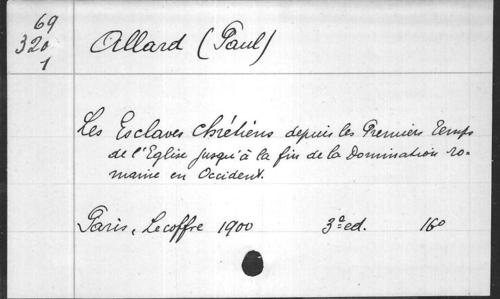 69
320
1
Allard (Paul)
Les Esclaves chrétiens depuis les Premiers Temps
de l'Eglise jusqu'à la fin de la Domination ro-
maine en Occident.
Paris, Lecoffre 1900 3ª ed. 16º